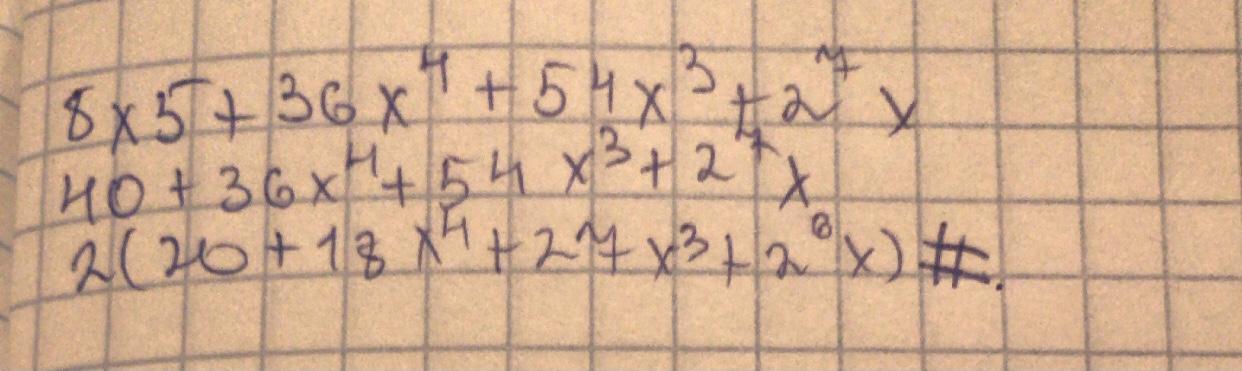 8x5+36x⁴+54x³+2⁷x
40+36x⁴+54x³+2⁷x
2(20+18x⁴+27x³+2⁶x)#.